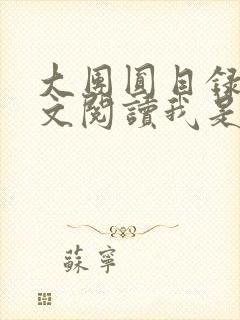 大團圓目錄
文閱讀我是
蘇寧